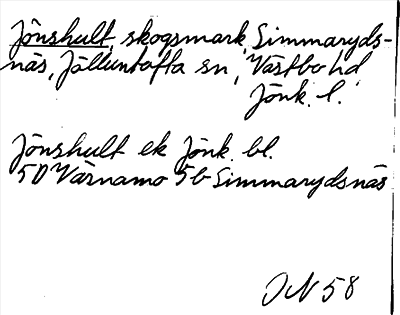 Jönshult, skogsmark, Simmaryds-
näs, Jälluntofta sn, Västbo hd
Jönk. l.
Jönshult ek Jönk. bl.
5D Värnamo 5b Simmarydsnäs
ON 58